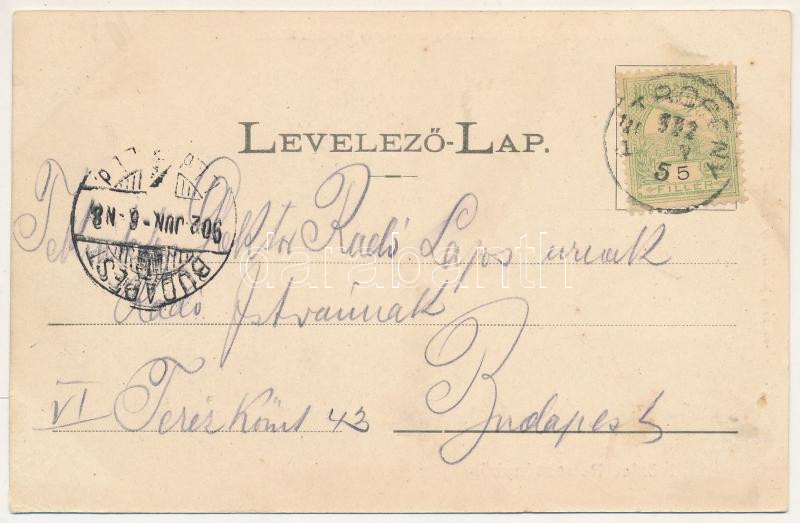 LEVELEZŐ-LAP.
PETROSÉNY
5
FILLÉR
902 JUN.-6.-N8
BUDAPEST
Radó Lajos urnak
Radó Istvánnak
VI Teréz Körút 42
Budapest
darabanth